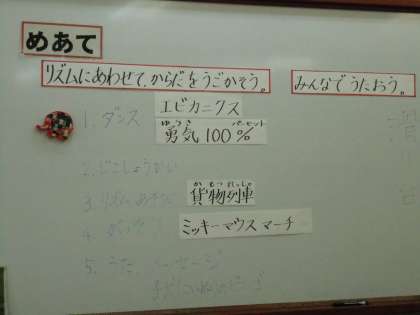 めあて
リズムにあわせて、からだをうごかそう。
みんなでうたおう。
1. ダンス エビカニクス
ゆうき パーセント
勇気100%
2. じこしょうかい
3. リズム
かもつれっしゃ
貨物列車
4.
ミッキーマウスマーチ
5. うた